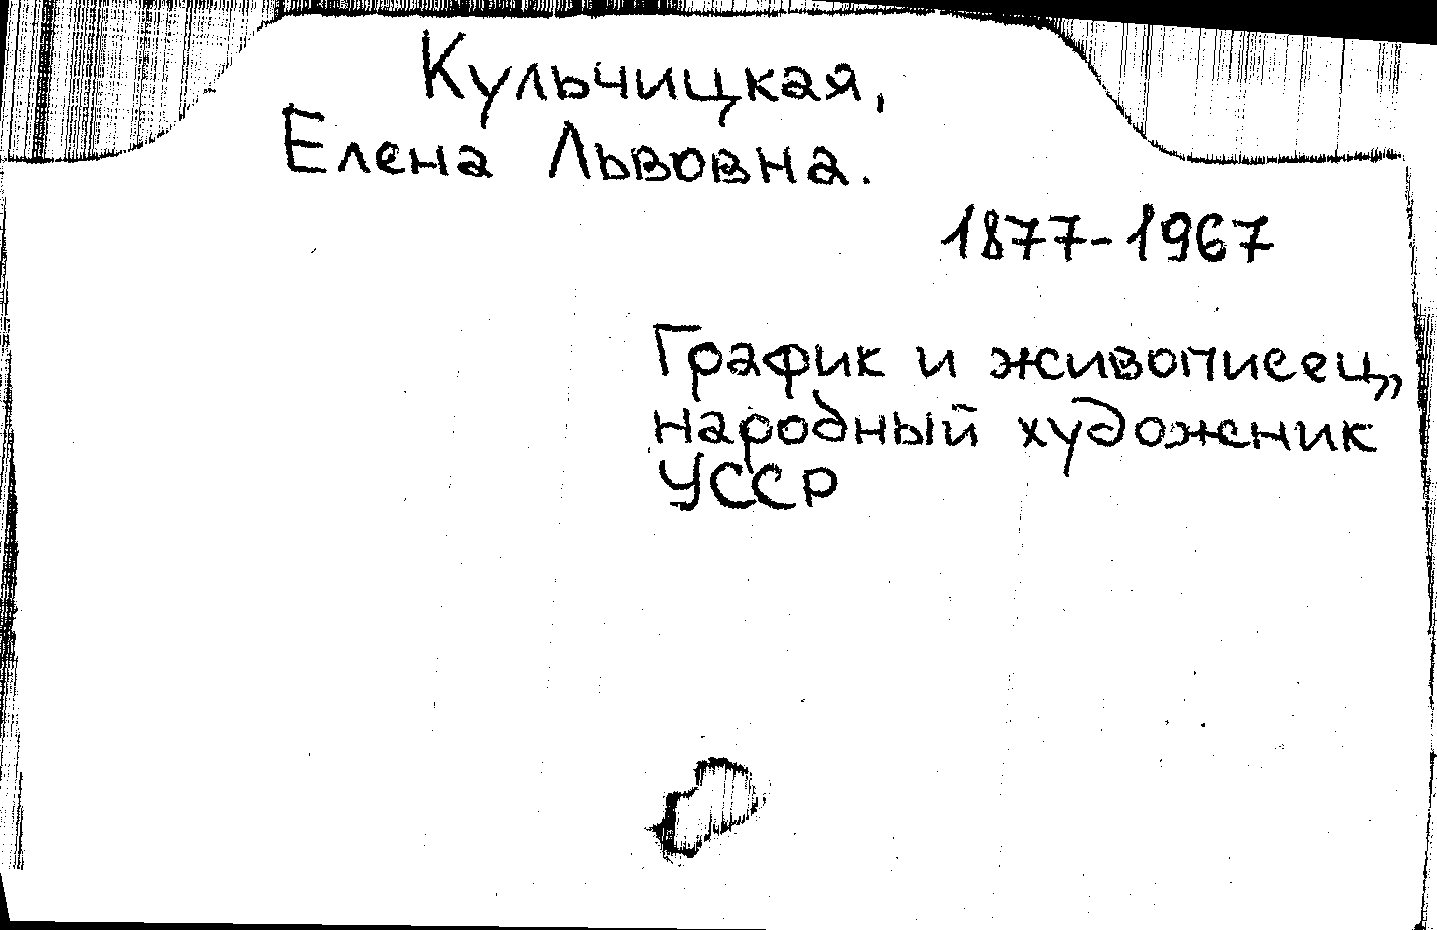 Кульчицкая,
Елена Львовна.
1877-1967
График и живописец,
народный художник
УССР